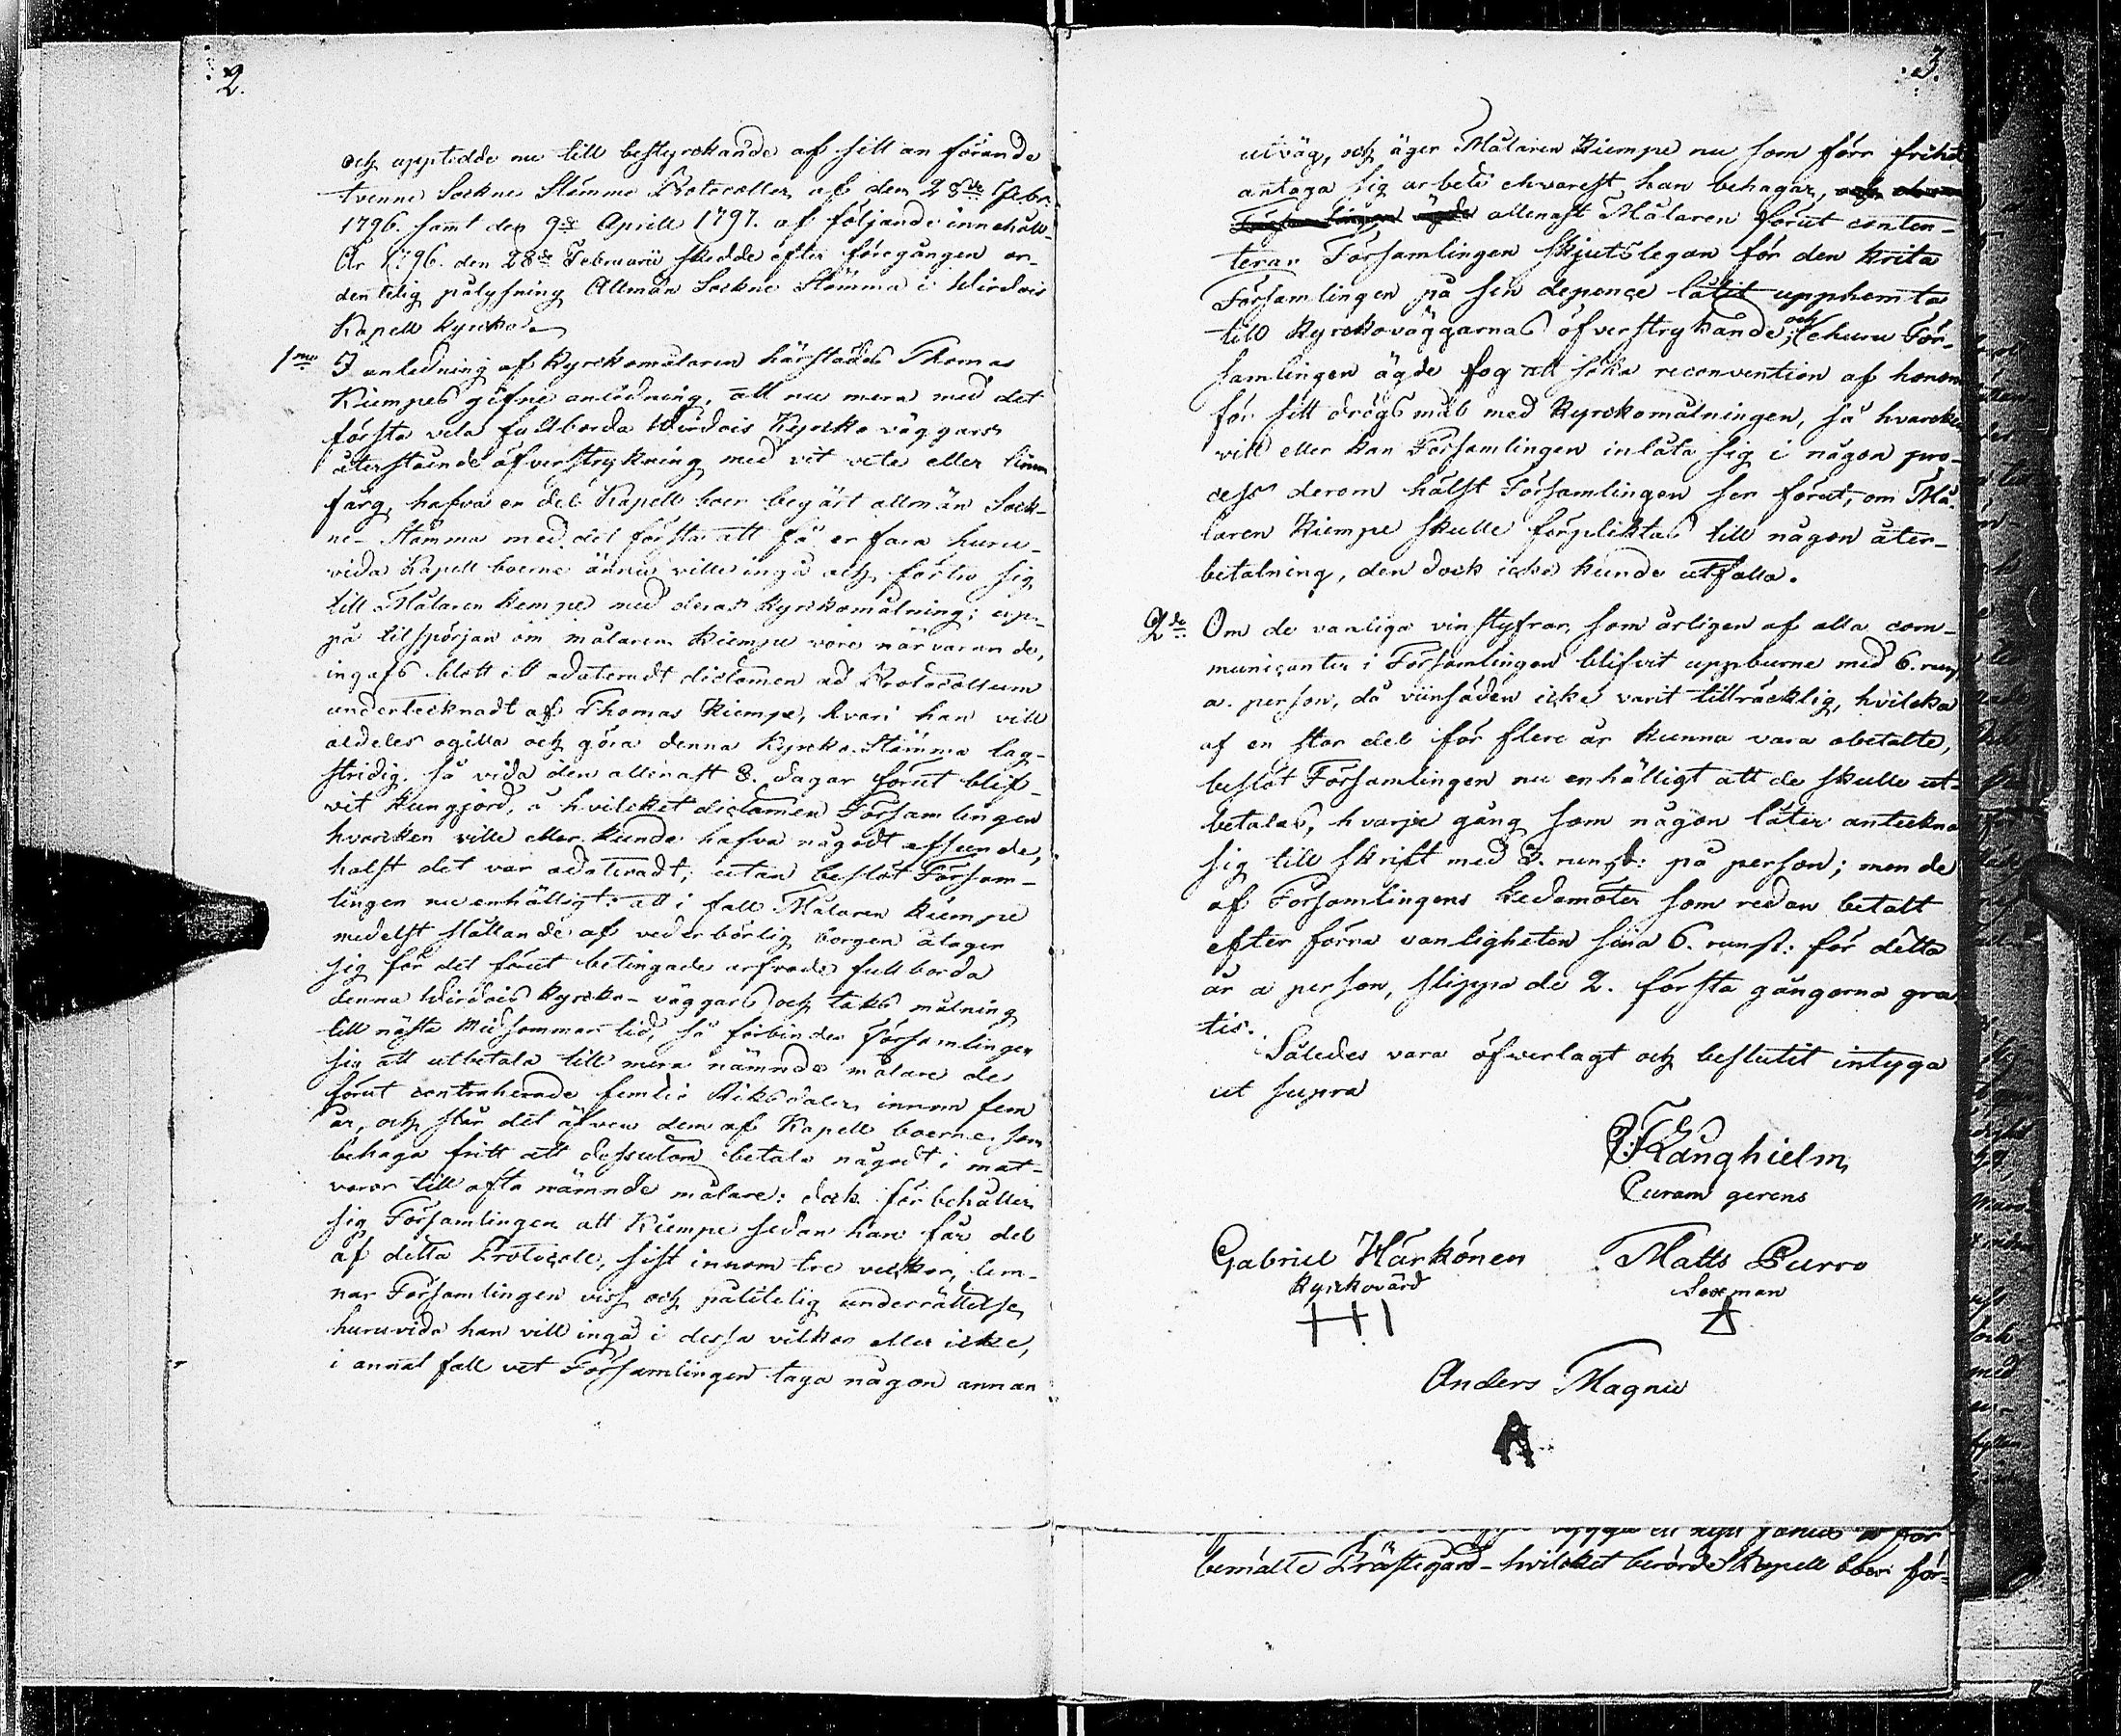 2.
och upptedde nu till bestyrckande af sitt an förande
tvenne Sockne Stämmo Protocoller af den 28de Febr.
1796. samt den 9de Aprill 1797. af följande innehåll
År 1796. den 28de Februarii skedde efter föregången or-
dentelig pålysning Allmän Sockne Stämma i Wirdois
Kapell kyrcka.
1mo I anledning af kyrckomålaren härstädes Thomas
Kiempes gifne anledning, att nu mera med det
första vela fullborda Wirdois Kyrcko väggars
återstående öfverstrykning med vit
färg, hafva en del Kapell boer begärt allmän Sock-
ne-Stämma med det första att få erfara huru-
vida Kapell boerne ännu ville ingå och förlita sig
till Målaren Kempe med deras kyrckomålning; up-
på tilspörjan om målaren Kiempe vore närvarande,
ingafs blott ett odateradt dictamen ad Protocollum
undertecknadt af Thomas Kiempe, hvari han vill
aldeles ogilla och göra denna Kyrcko-Stämma lag-
stridig, så vida den allenast 8. dagar förut blif-
vit kungjord, å hvilcket dictamen Församlingen
hvarcken ville eller kunde hafva något afseende,
halst det var odateradt; utan beslöt Försam-
lingen nu enhälligt: att i fall Målaren Kiempe
medelst stållande af vederbörlig borgen åtager
sig för det förut betingade arfvode fullborda
denna Wirdois kyrcko-väggars och taks målning
till nästa Midsommars tid, så förbinder Församlingen
sig att utbetala till mera nämnde målare de
förut contraherade femtio Riksdaler innom fem
år, och står det äfven dem af Kapell boerne, som
behaga fritt att dessutom betala något i mat-
varor till ofta nämnde målare: dock förbehåller
sig Församlingen att Kiempe sedan han får del
af detta Protocoll, sist innom tre veckor, lem-
nar Församlingen viss och pålitelig underrättelse,
huruvida han vill ingå i dessa vilkor eller icke,
i annat fall vet Församlingen taga någon annan
3.
utväg, och äger Målaren Kiempe nu som förr frihet
antaga sig arbete ehvarest han behagar,
allenast Målaren förut conten-
terar Församlingen skjutslegan för den krita
Församlingen på sin depence låtit upphemta
till kyrckoväggarnas öfverstrykande; och ehuru För-
samlingen ägde fog att söka reconvention af honom
för sitt drögsmål med Kyrckomålningen, så hvarcken
vill eller kan Församlingen inlåta sig i någon pro-
cess derom hälst Församlingen ser förut, om Må-
laren Kiempe skulle förpliktas till någon åter-
betalning, den dock icke kunde utfalla.
2do Om de vanliga vin styfrar, som årligen af alla com-
municanter i Församlingen blifvit uppburne med 6. runs
a person, då viinsäden icke varit tillräcklig, hvilcka
af en stor del för flere år kunna vara obetalte,
beslöt Församlingen nu enhälligt att de skulle ut-
betalas, hvarje gång som någon låter anteckna
sig till skrift med 3. runst: på person; men de
af Församlingens Ledamöter som redan betalt
efter förra vanligheten sina 6. runst: för detta
år a person, slippa de 2. första gångorna gra
tis.
Således vara öfverlagt och beslutit intyga
ut supra
Langhielm
Curam gerens
Gabriel Härkönen Matts Purro
Kyrckovärd Sexman
Anders Magnu
A
bemälte Prästegård - hvilcket berörde Kapell boer för-